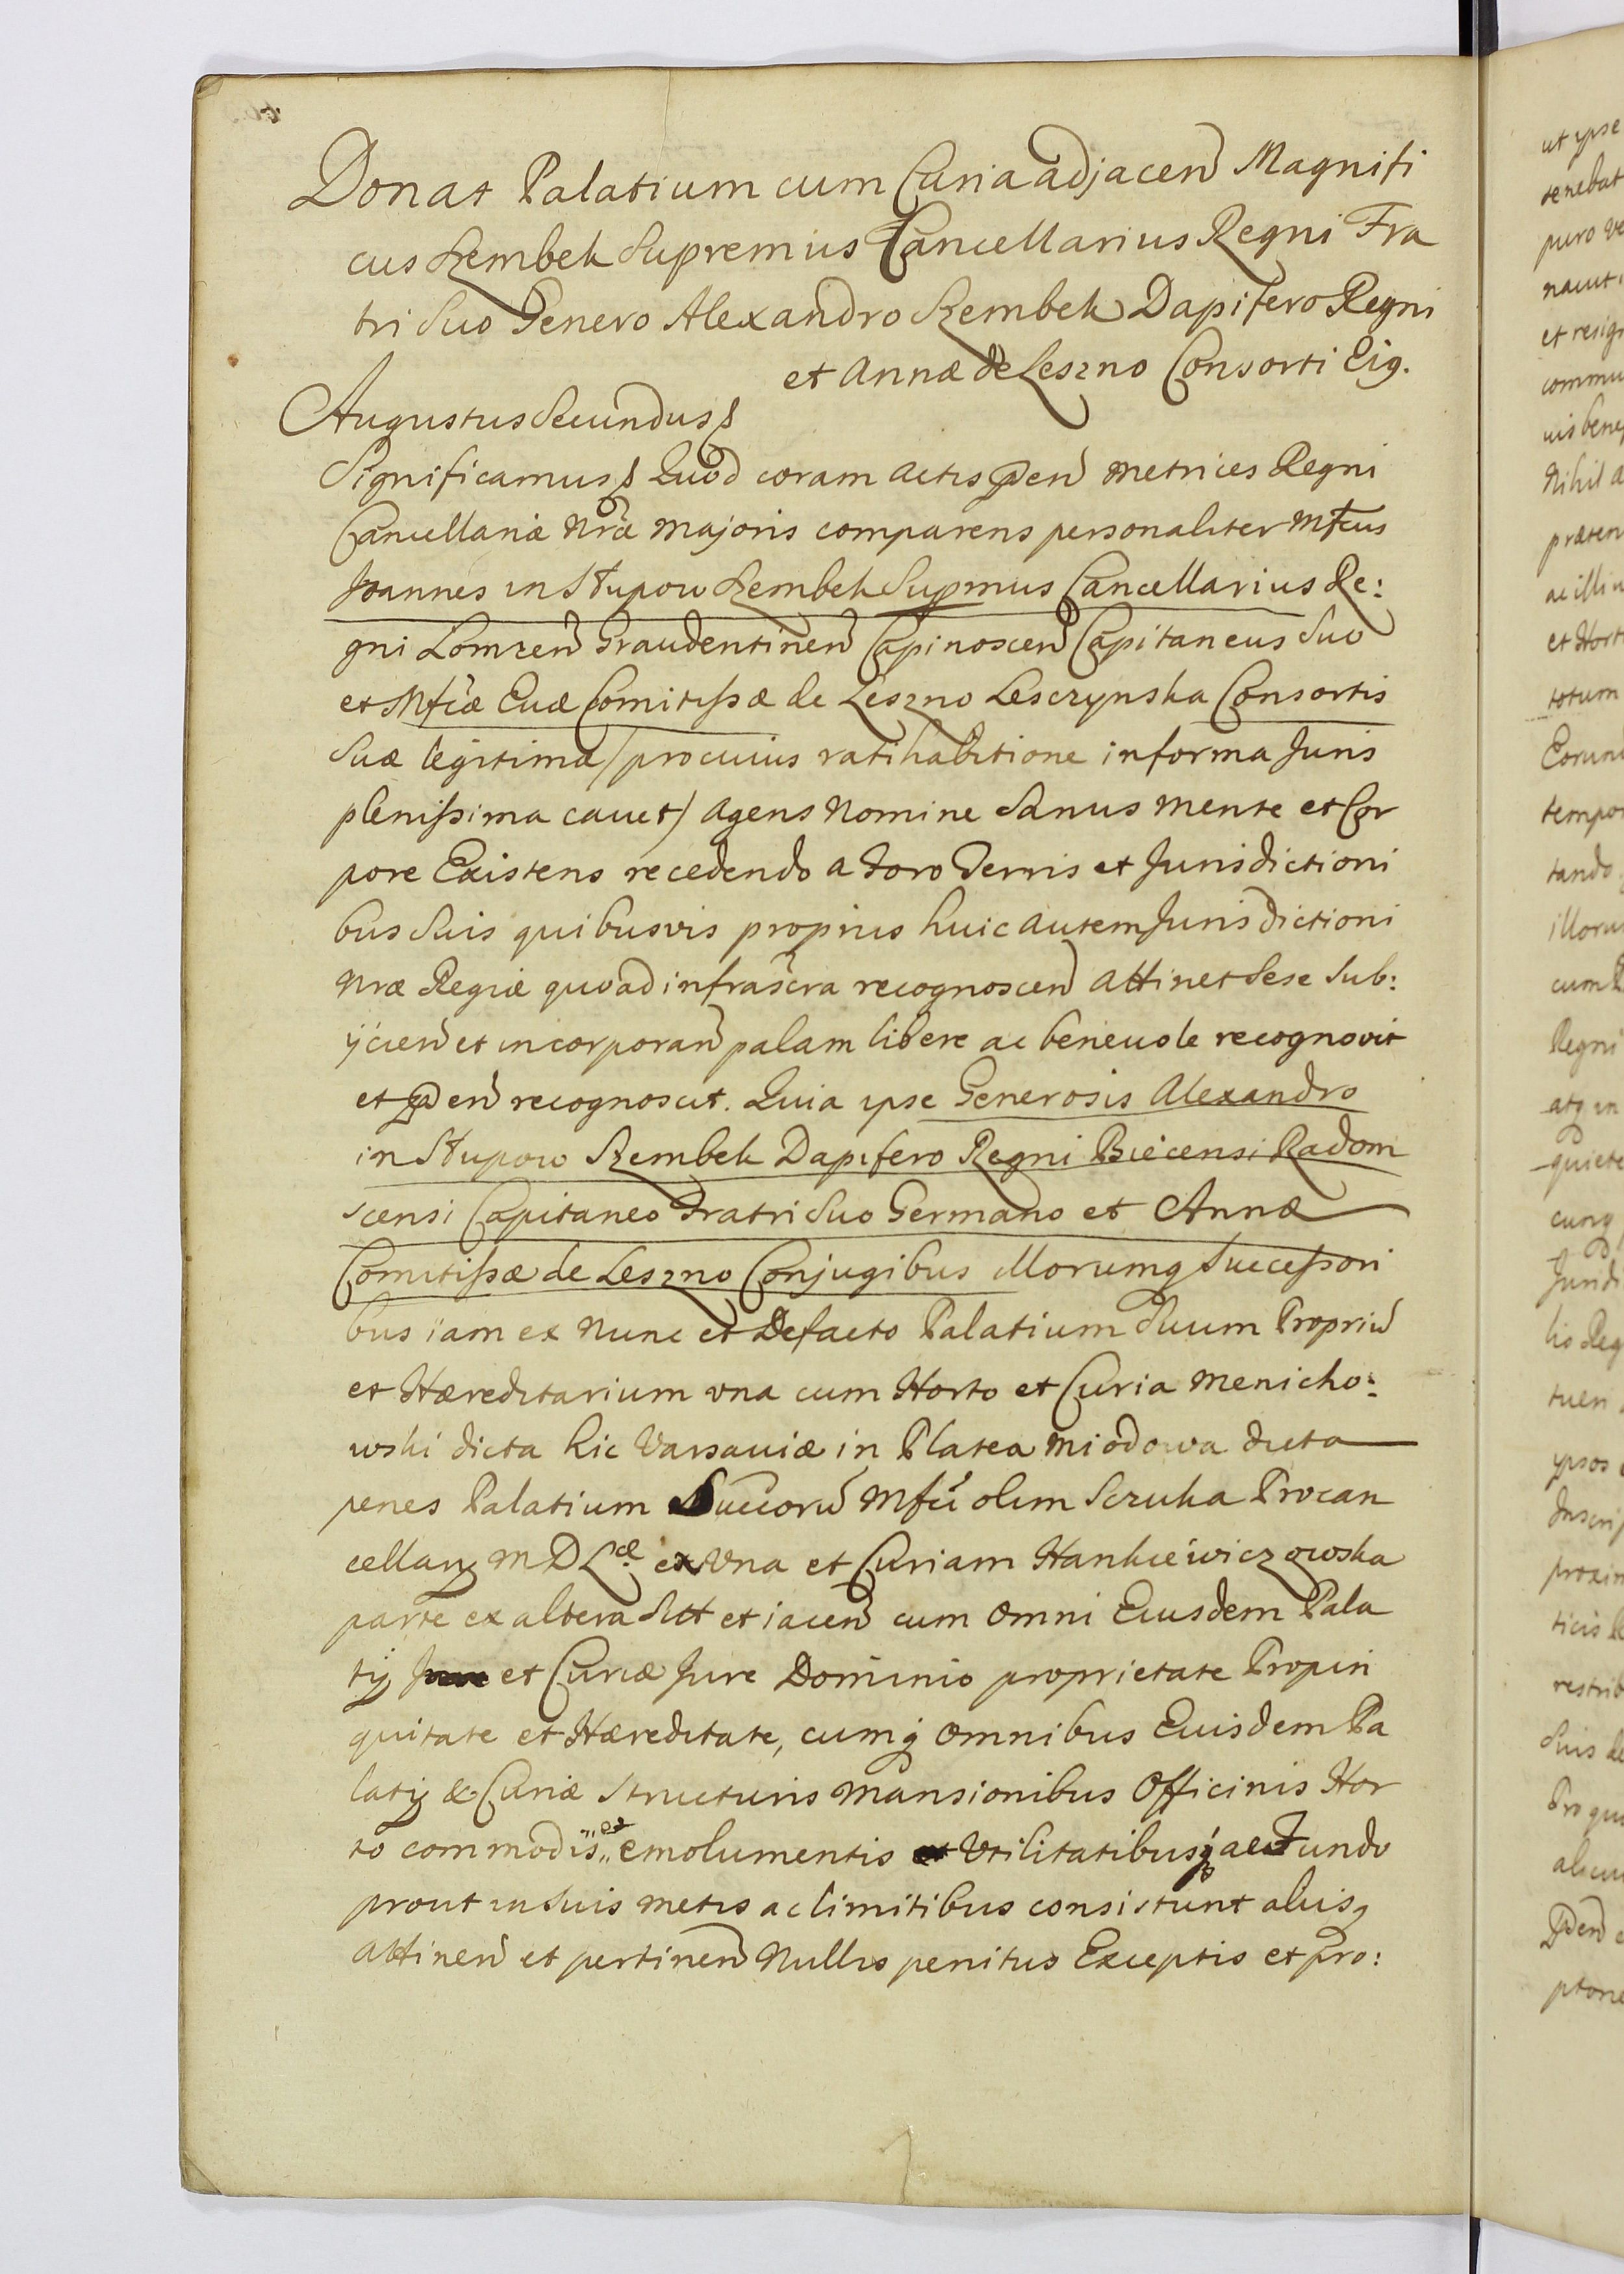 Donat Palatium cum Curia adjacen Magnifi
cus Szembek Supremus Cancellarius Regni Fra
tri Suo Genero Alexandro Szembek Dapifero Regni
et Annæ de Leszno Consorti Eig.
Augustus Secundus
Significamus Quod coram actis pñ Metrices Regni
Cancellariæ Nræ Majoris comparens personaliter Mfcus
Joannes in Słupow Szembek Supmus Cancellarius Re:
gni Lomzen Graudentinen Capinoscen Capitaneus Suo
et Mfcæ Evæ Comitissæ de Leszno Lesczynska Consortis
Suæ legitimæ / pro cuius ratihabitione in forma Juris
plenissima cavet / agens Nomine Sanus mente et Cor
pore Existens recedendo a Foro Terris et Jurisdictioni
bus Suis quibusvis proprius huic autem Jurisdictioni
Nræ Regiæ quoad infrascra recognoscen attinet Sese Sub:
ijcien et incorporan palam libere ac benevole recognovit
et pñ recognoscit. Quia ipse Generosis Alexandro
in Słupow Szembek Dapifero Regni Biecensi Radom
scensi Capitaneo Fratri Suo Germano et Annæ
Comitissæ de Leszno Conjugibus illorumq Successori
bus iam ex Nunc et Defacto Palatium Suum Propriu
et Hæreditarium vna cum Horto et Curia Menicho:
wski dicta hic Varsaviæ in Platea Miodowa dicta
penes Palatium Succoru Mfci olim Sczuka Procan
cellarij M D L ex Vna et Curiam Hankiewiczowska
parte ex altera Sitt et iacen cum omni Eiusdem Pala
tij et Curiæ Jure Dominio proprietate Propin
quitate et Hæreditate, cumq omnibus Euisdem Pa
latij & Curiæ Structuris Mansionibus Officinis Hor
to commodis et emolumentis Vtilitatibusq ac Fundo
prout in Suis metis ac limitibus consistunt aliisq
attinen et pertinen Nullis penitus Exceptis et pro: